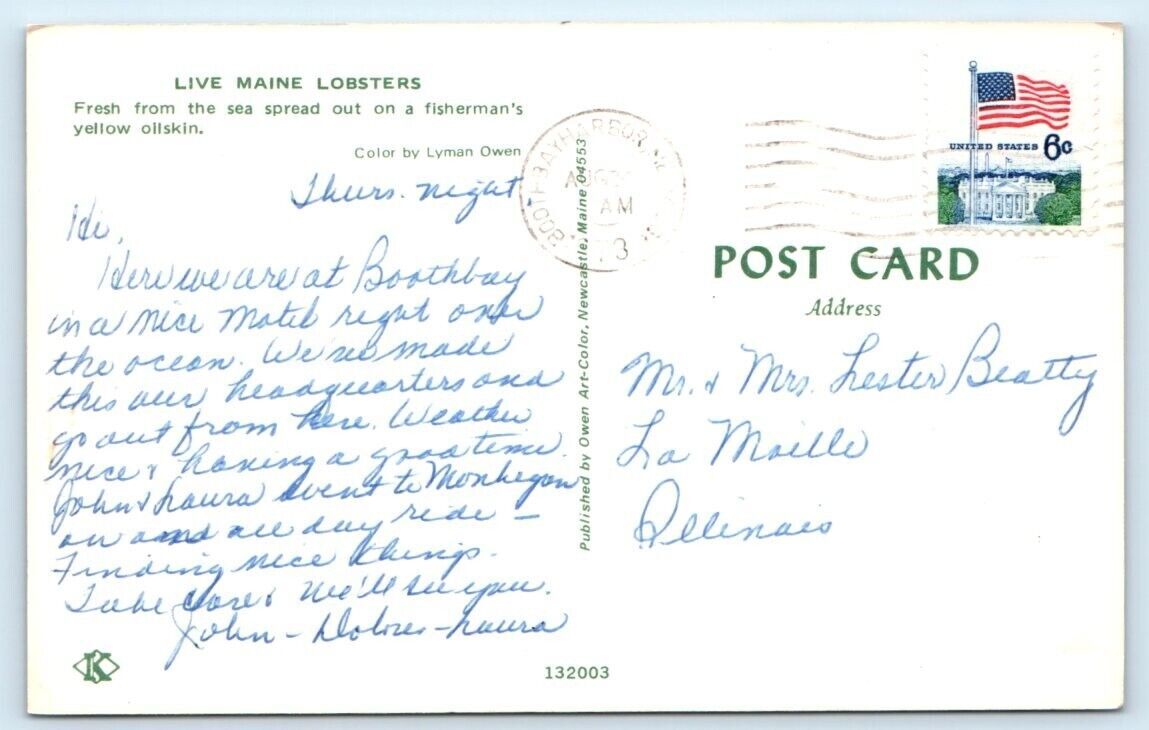 LIVE MAINE LOBSTERS
Fresh from the sea spread out on a fisherman's
yellow oilskin.
Color by Lyman Owen
Thurs. night
Hi,
Here we are at Boothbay
in a nice Motel right over
the ocean. We've made
this our headquarters and
go out from here. Weather
nice & having a good time.
John & Laura went to Monhegan
on an all day ride –
Finding nice things.
Take care & We'll see you.
John – Dolores – Laura
K
132003
Published by Owen Art-Color, Newcastle, Maine 04553
BOOTHBAY HARBOR, ME
AUG
AM
UNITED STATES 6c
POST CARD
Address
Mr. & Mrs. Lester Beatty
La Moille
Illinois